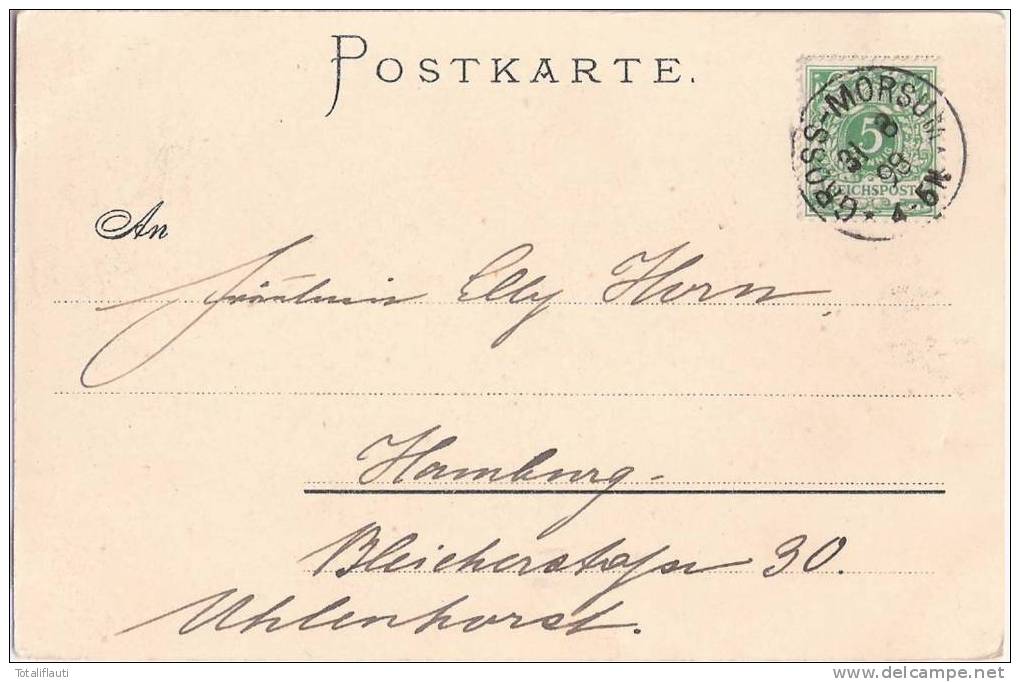 POSTKARTE.
5
REICHSPOST
GROSS-MORSUM
31 8
99
4-5N
An
Fräulein Elly Horn
Hamburg-
Bleicherstraße 30.
Uhlenhorst.
Totaliflauti
www.delcampe.net